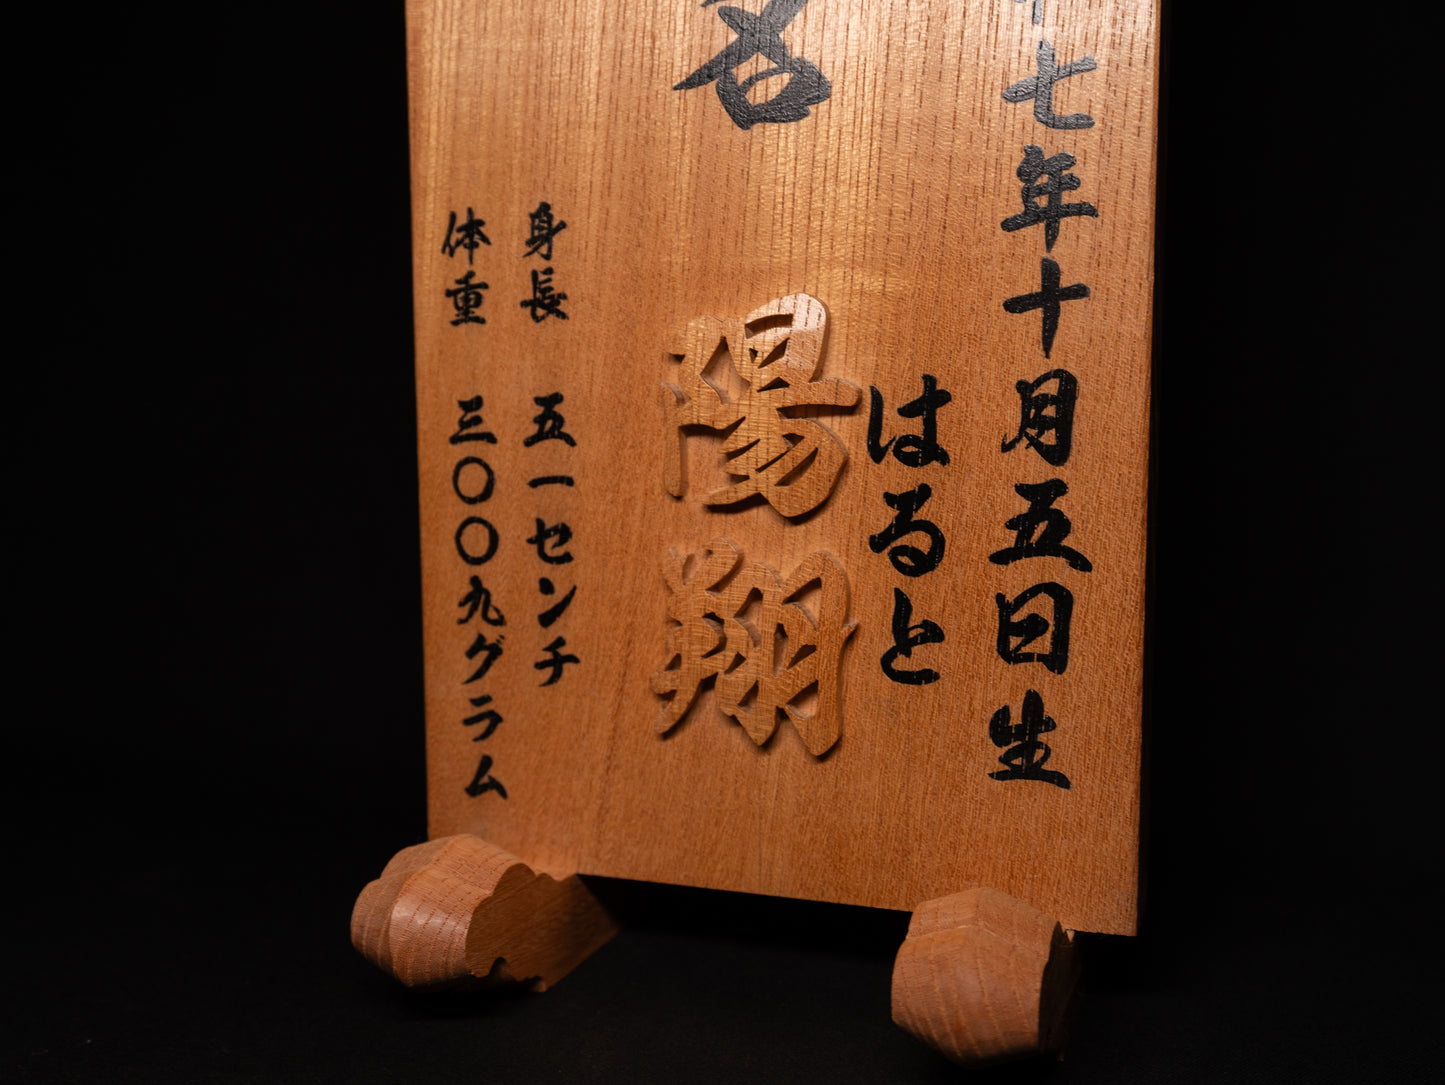 七年十月五日生
はると
名
陽翔
身長 五一センチ
体重 三〇〇九グラム